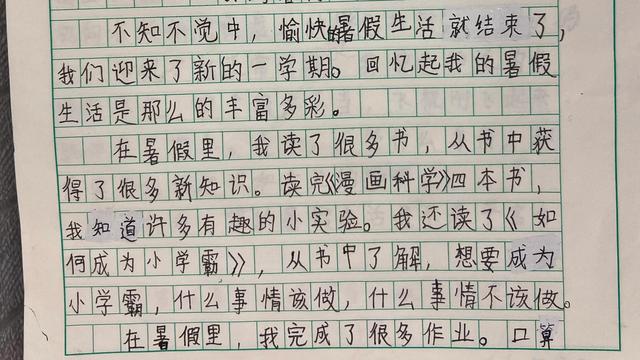 不知不觉中，愉快的暑假生活就结束了，
我们迎来了新的一学期。回忆起我的暑假
生活是那么的丰富多彩。
在暑假里，我读了很多书，从书中获
得了很多新知识。读完《漫画科学》四本书，
我知道许多有趣的小实验。我还读了《如
何成为小学霸》，从书中了解，想要成为
小学霸，什么事情该做，什么事情不该做。
在暑假里，我完成了很多作业。口算